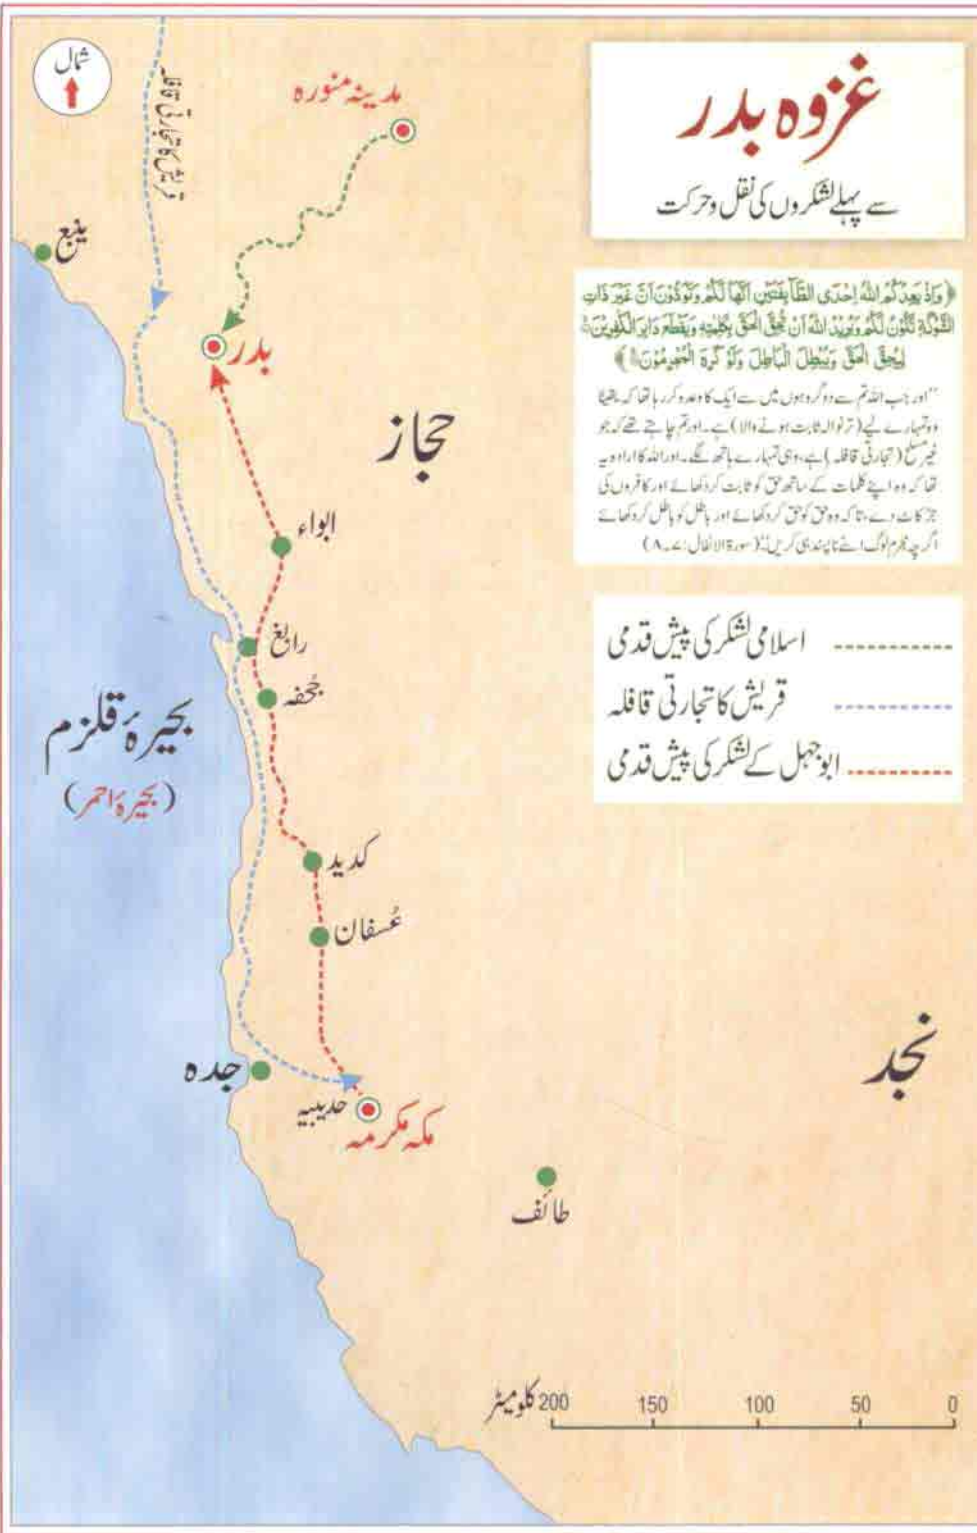 غزوہ بدر
سے پہلے لشکروں کی نقل و حرکت
﴿وَإِذْ يَعِدُكُمُ اللّٰهُ إِحْدَى الطَّآئِفَتَيْنِ أَنَّهَا لَكُمْ وَتَوَدُّوْنَ أَنَّ غَيْرَ ذَاتِ
الشَّوْكَةِ تَكُوْنُ لَكُمْ وَيُرِيْدُ اللّٰهُ أَنْ يُّحِقَّ الْحَقَّ بِكَلِمٰتِهٖ وَيَقْطَعَ دَابِرَ الْكٰفِرِيْنَ
لِيُحِقَّ الْحَقَّ وَيُبْطِلَ الْبَاطِلَ وَلَوْ كَرِهَ الْمُجْرِمُوْنَ﴾
"اور جب اللہ تم سے دو گروہوں میں سے ایک کا وعدہ کر رہا تھا کہ یقینًا
وہ تمہارے لیے (تر نوالہ ثابت ہونے والا) ہے۔ اور تم چاہتے تھے کہ جو
غیر مسلح (تجارتی قافلہ) ہے، وہی تمہارے ہاتھ لگے۔ اور اللہ کا ارادہ یہ
تھا کہ وہ اپنے کلمات کے ساتھ حق کو ثابت کر دکھائے اور کافروں کی
جڑ کاٹ دے، تا کہ وہ حق کو حق کر دکھائے اور باطل کو باطل کر دکھائے
اگرچہ مجرم لوگ اسے ناپسند ہی کریں۔" (سورۃ الانفال: ۷۔۸)
اسلامی لشکر کی پیش قدمی
قریش کا تجارتی قافلہ
ابوجہل کے لشکر کی پیش قدمی
شمال
قریش کا تجارتی قافلہ
مدینہ منورہ
ینبع
بدر
حجاز
ابواء
رابغ
جُحفہ
بحیرۂ قلزم
(بحیرۂ احمر)
کدید
عُسفان
نجد
جدہ
حدیبیہ
مکہ مکرمہ
طائف
0 50 100 150 200 کلومیٹر